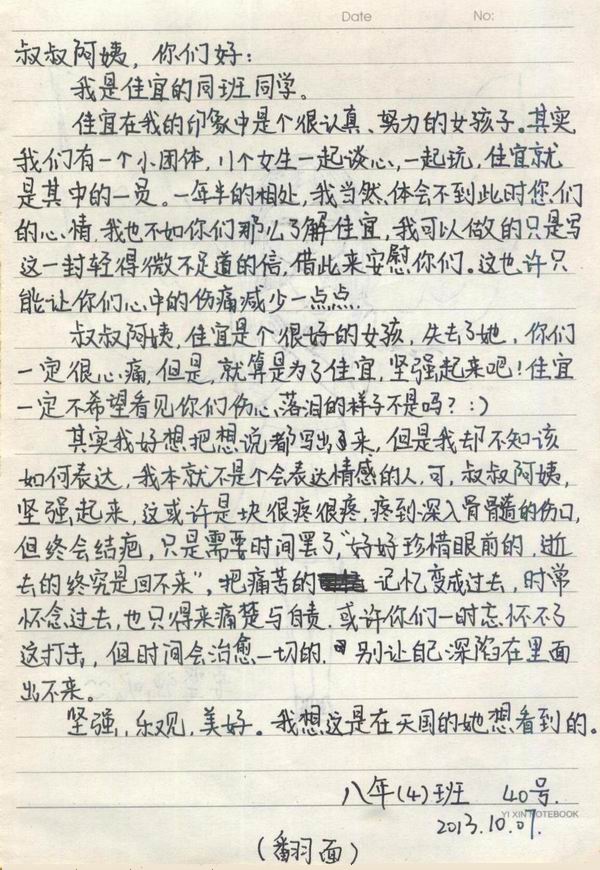 Date No:
叔叔阿姨，你们好：
我是佳宜的同班同学。
佳宜在我的印象中是个很认真、努力的女孩子。其实
我们有一个小团体，川个女生一起谈心，一起玩，佳宜就
是其中的一员。一年半的相处，我当然体会不到此时您们
的心情，我也不如你们那么了解佳宜，我可以做的只是写
这一封轻得微不足道的信，借此来安慰你们。这也许只
能让你们心中的伤痛减少一点点.
叔叔阿姨，佳宜是个很好的女孩，失去了她，你们
一定很心痛，但是，就算是为了佳宜，坚强起来吧！佳宜
一定不希望看见你们伤心落泪的样子不是吗？:)
其实我好想把想说都写出来，但是我却不知该
如何表达，我本就不是个会表达情感的人，可，叔叔阿姨，
坚强起来，这或许是块很疼很疼，疼到深入骨骨髓的伤口，
但终会结疤，只是需要时间罢了，“好好珍惜眼前的，逝
去的终究是回不来”，把痛苦的 记忆变成过去，时常
怀念过去，也只得来痛楚与自责.或许你们一时忘怀不了
这打击，但时间会治愈一切的.别让自己深陷在里面
出不来。
坚强，乐观，美好。我想这是在天国的她想看到的。
八年(4)班 40号.
YI XIN NOTEBOOK
2013.10.07.
(翻面)